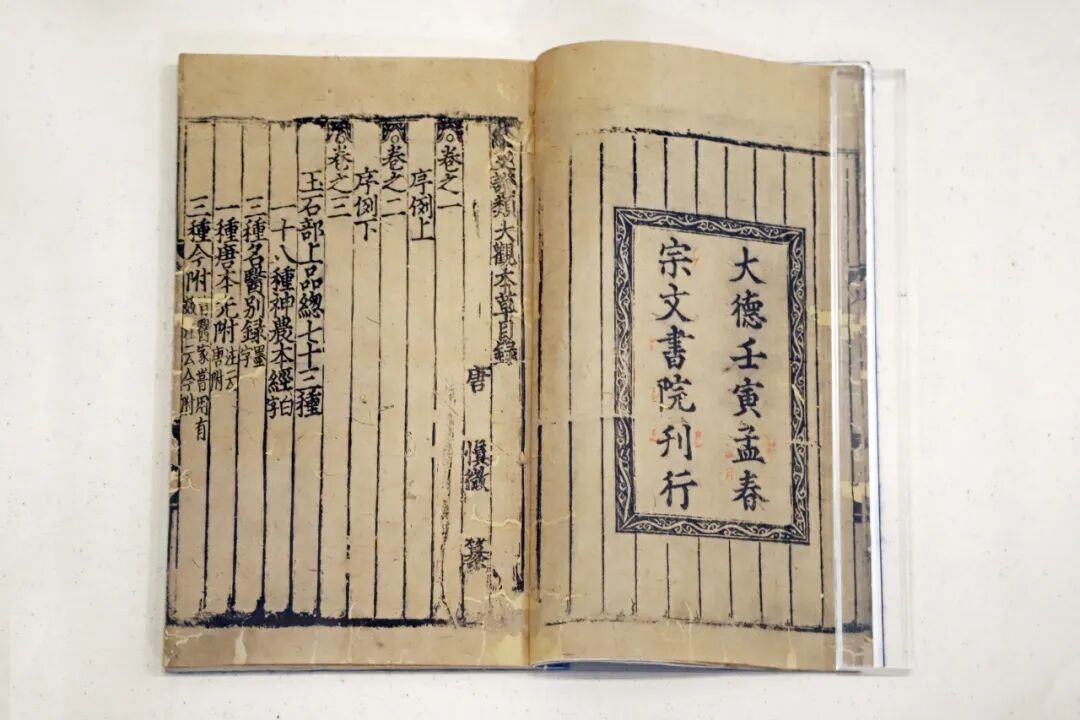 大德壬寅孟春
宗文書院刊行
經史證類大觀本草目錄
唐 慎微 纂
卷之一
序例上
卷之二
序例下
卷之三
玉石部上品總七十三種
一十八種神農本經白字
三種名醫別録墨字
一種唐本先附注云唐附
三種今附皆醫家嘗用有注云今附